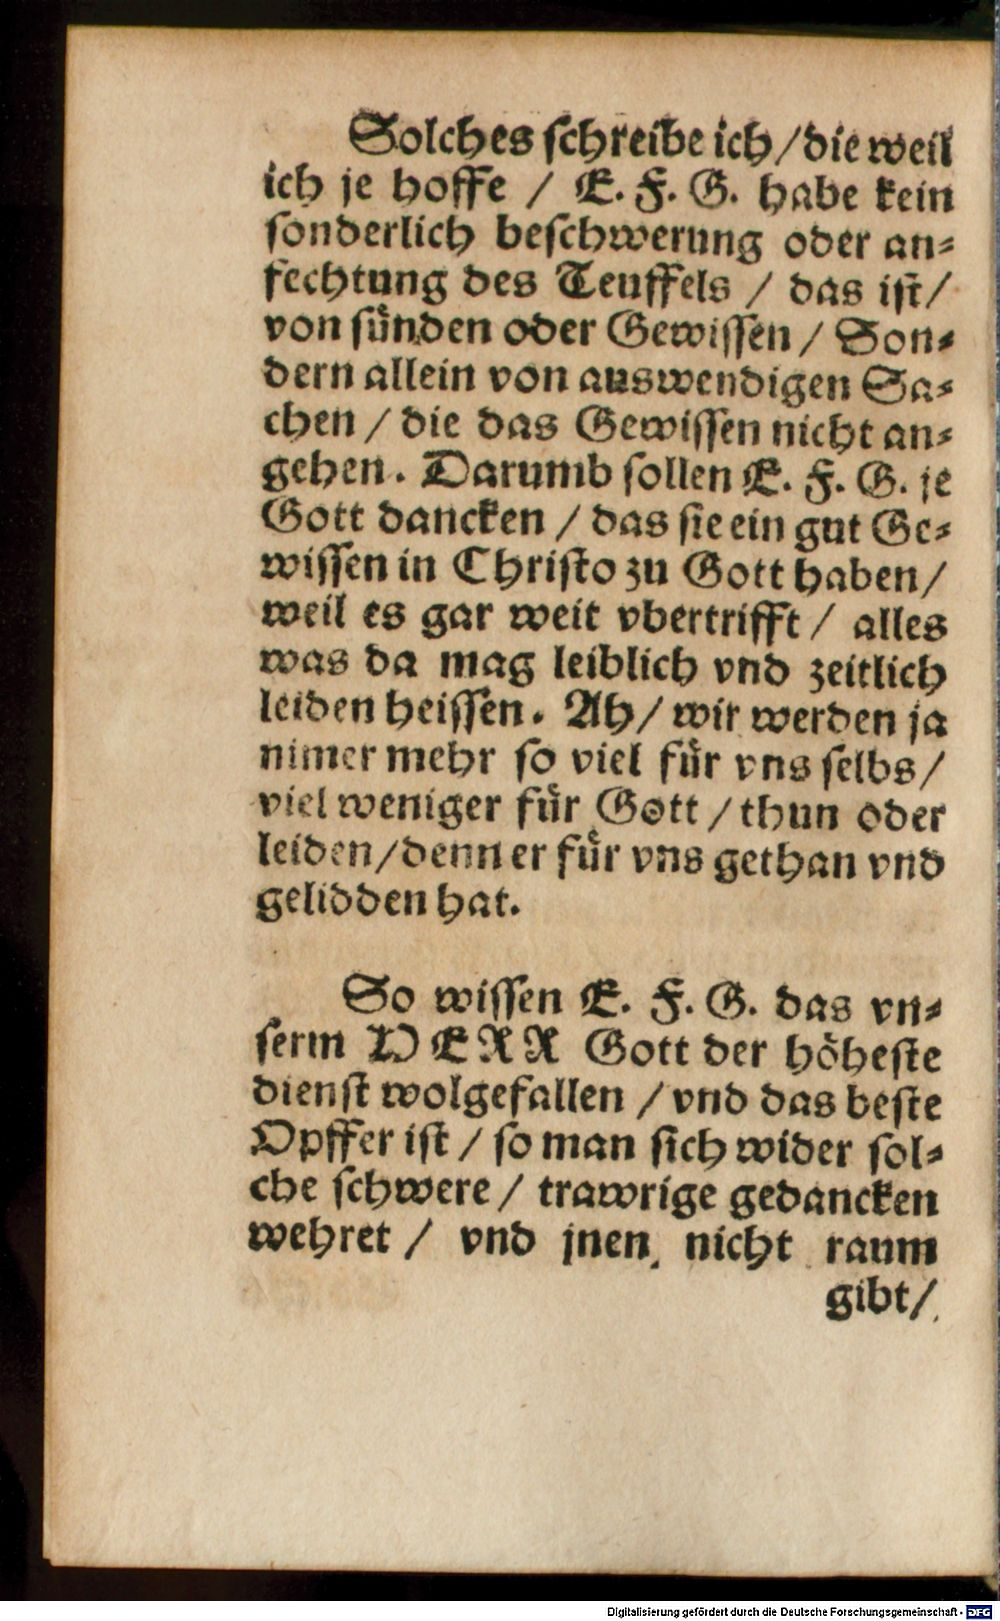 Solches schreibe ich/die weil
ich je hoffe / E. F. G. habe kein
sonderlich beschwerung oder an⸗
fechtung des Teuffels / das ist/
von sünden oder Gewissen / Son⸗
dern allein von auswendigen Sa⸗
chen / die das Gewissen nicht an⸗
gehen. Darumb sollen E. F. G. je
Gott dancken / das sie ein gut Ge⸗
wissen in Christo zu Gott haben/
weil es gar weit vbertrifft / alles
was da mag leiblich vnd zeitlich
leiden heissen. Ah/ wir werden ja
nimer mehr so viel für vns selbs/
viel weniger für Gott / thun oder
leiden/denn er für vns gethan vnd
gelidden hat.
So wissen E. F. G. das vn⸗
serm HERR Gott der höheste
dienst wolgefallen / vnd das beste
Opffer ist / so man sich wider sol⸗
che schwere / trawrige gedancken
wehret / vnd jnen nicht raum
gibt/
Digitalisierung gefördert durch die Deutsche Forschungsgemeinschaft - DFG